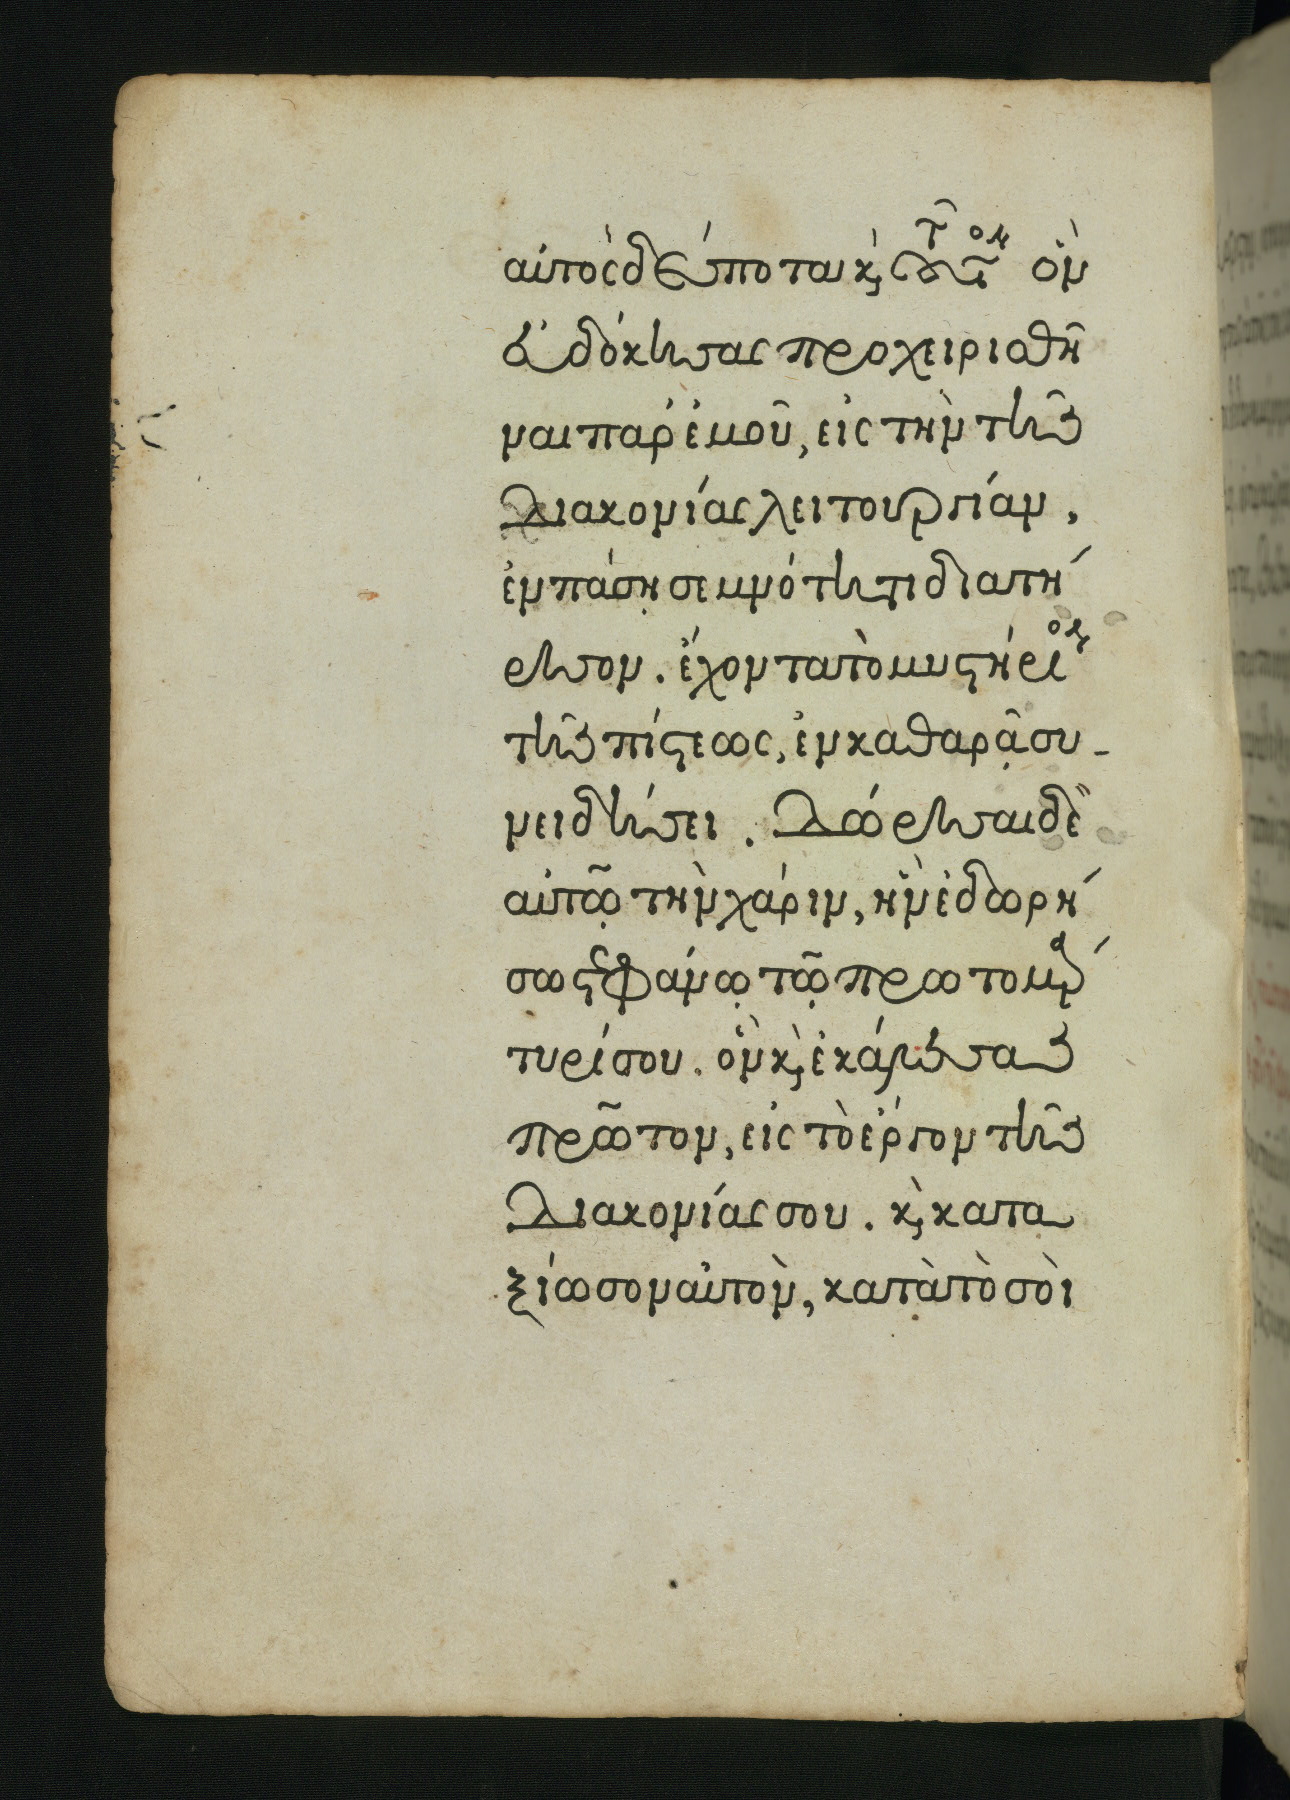 αὐτὸς δέσποτα καὶ τοῦτον ὃν
εὐδόκησας προχειρισθῆ
ναι παρ' ἐμοῦ, εἰς τὴν τῆς
Διακονίας λειτουργίαν,
ἐν πάσῃ σεμνότητι διατή
ρησον. ἔχοντα τὸ μυστήριον
τῆς πίστεως, ἐν καθαρᾷ συ-
νειδήσει. Δώρησαι δὲ
αὐτῷ τὴν χάριν, ἣν ἐδωρή
σω στεφάνῳ τῷ πρωτομάρ
τυρί σου. ὃν καὶ ἐκάλεσας
πρῶτον, εἰς τὸ ἔργον τῆς
Διακονίας σου. καὶ κατα
ξίωσον αὐτὸν, κατὰ τὸ σοὶ